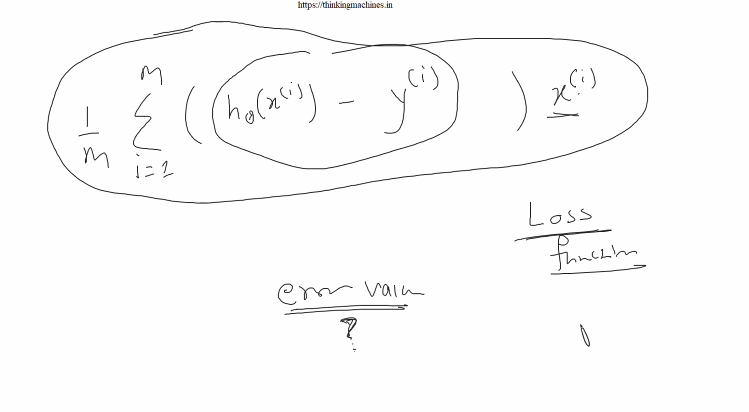 https://thinkingmachines.in
1/m m Σ i=1 ( h₀(x⁽ⁱ⁾) − y⁽ⁱ⁾ ) x⁽ⁱ⁾
Loss
function
error value
?